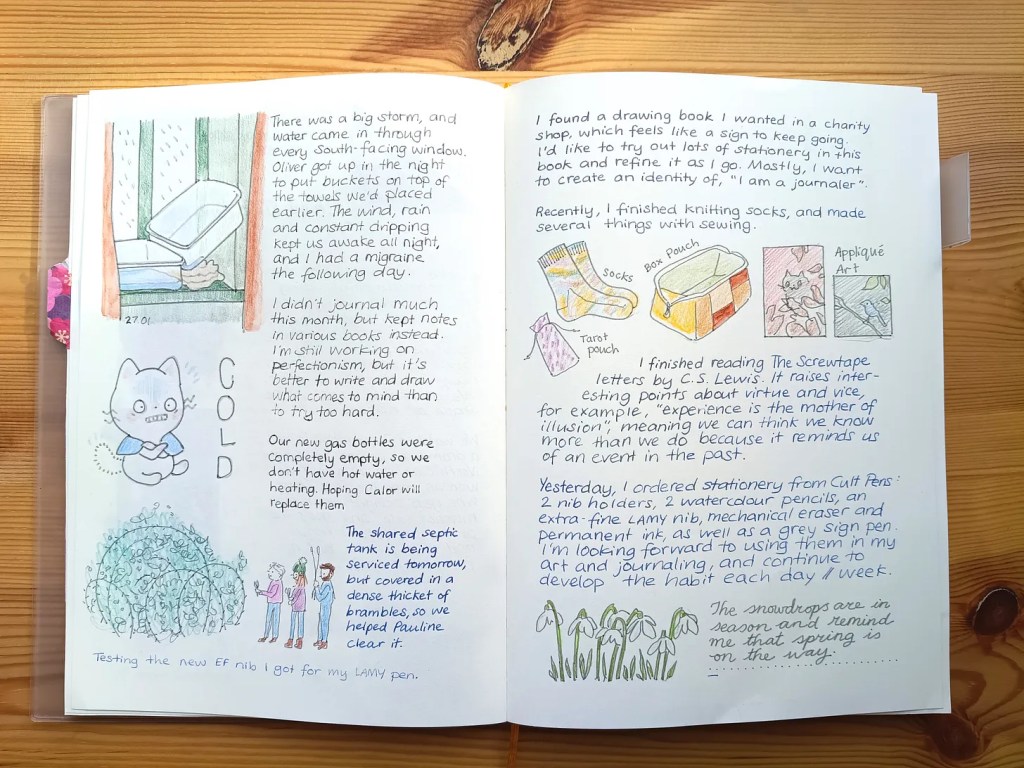 There was a big storm, and
water came in through
every south-facing window.
Oliver got up in the night
to put buckets on top of
the towels we'd placed
earlier. The wind, rain
and constant dripping
kept us awake all night,
and I had a migraine
the following day.
27.01
I didn't journal much
this month, but kept notes
in various books instead.
I'm still working on
perfectionism, but it's
better to write and draw
what comes to mind than
to try too hard.
COLD
Our new gas bottles were
completely empty, so we
don't have hot water or
heating. Hoping Calor will
replace them
The shared septic
tank is being
serviced tomorrow,
but covered in a
dense thicket of
brambles, so we
helped Pauline
clear it.
Testing the new EF nib I got for my LAMY pen.
I found a drawing book I wanted in a charity
shop, which feels like a sign to keep going.
I'd like to try out lots of stationery in this
book and refine it as I go. Mostly, I want
to create an identity of, "I am a journaler".
Recently, I finished knitting socks, and made
several things with sewing.
socks
Box Pouch
Appliqué
Art
Tarot
pouch
I finished reading The Screwtape
letters by C.S. Lewis. It raises inter-
esting points about virtue and vice,
for example, "experience is the mother of
illusion", meaning we can think we know
more than we do because it reminds us
of an event in the past.
Yesterday, I ordered stationery from Cult Pens:
2 nib holders, 2 watercolour pencils, an
extra-fine LAMY nib, mechanical eraser and
permanent ink, as well as a grey sign pen.
I'm looking forward to using them in my
art and journaling, and continue to
develop the habit each day // week.
The snowdrops are in
season and remind
me that spring is
on the way.